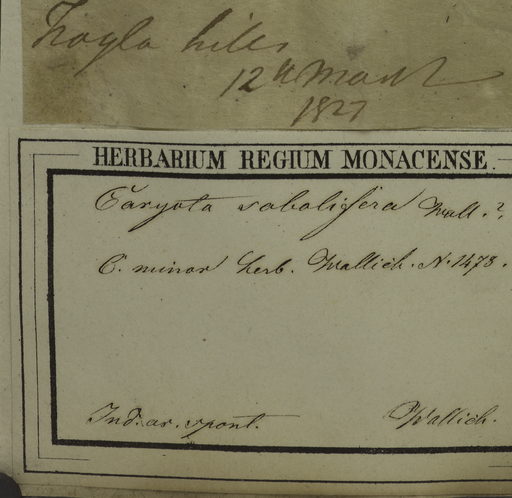 hills
12th March
1827
HERBARIUM REGIUM MONACENSE.
Caryota sobolifera Wall.?
C. minor herb. Wallich. N. 1473.
Ind. or. spont.
Wallich.